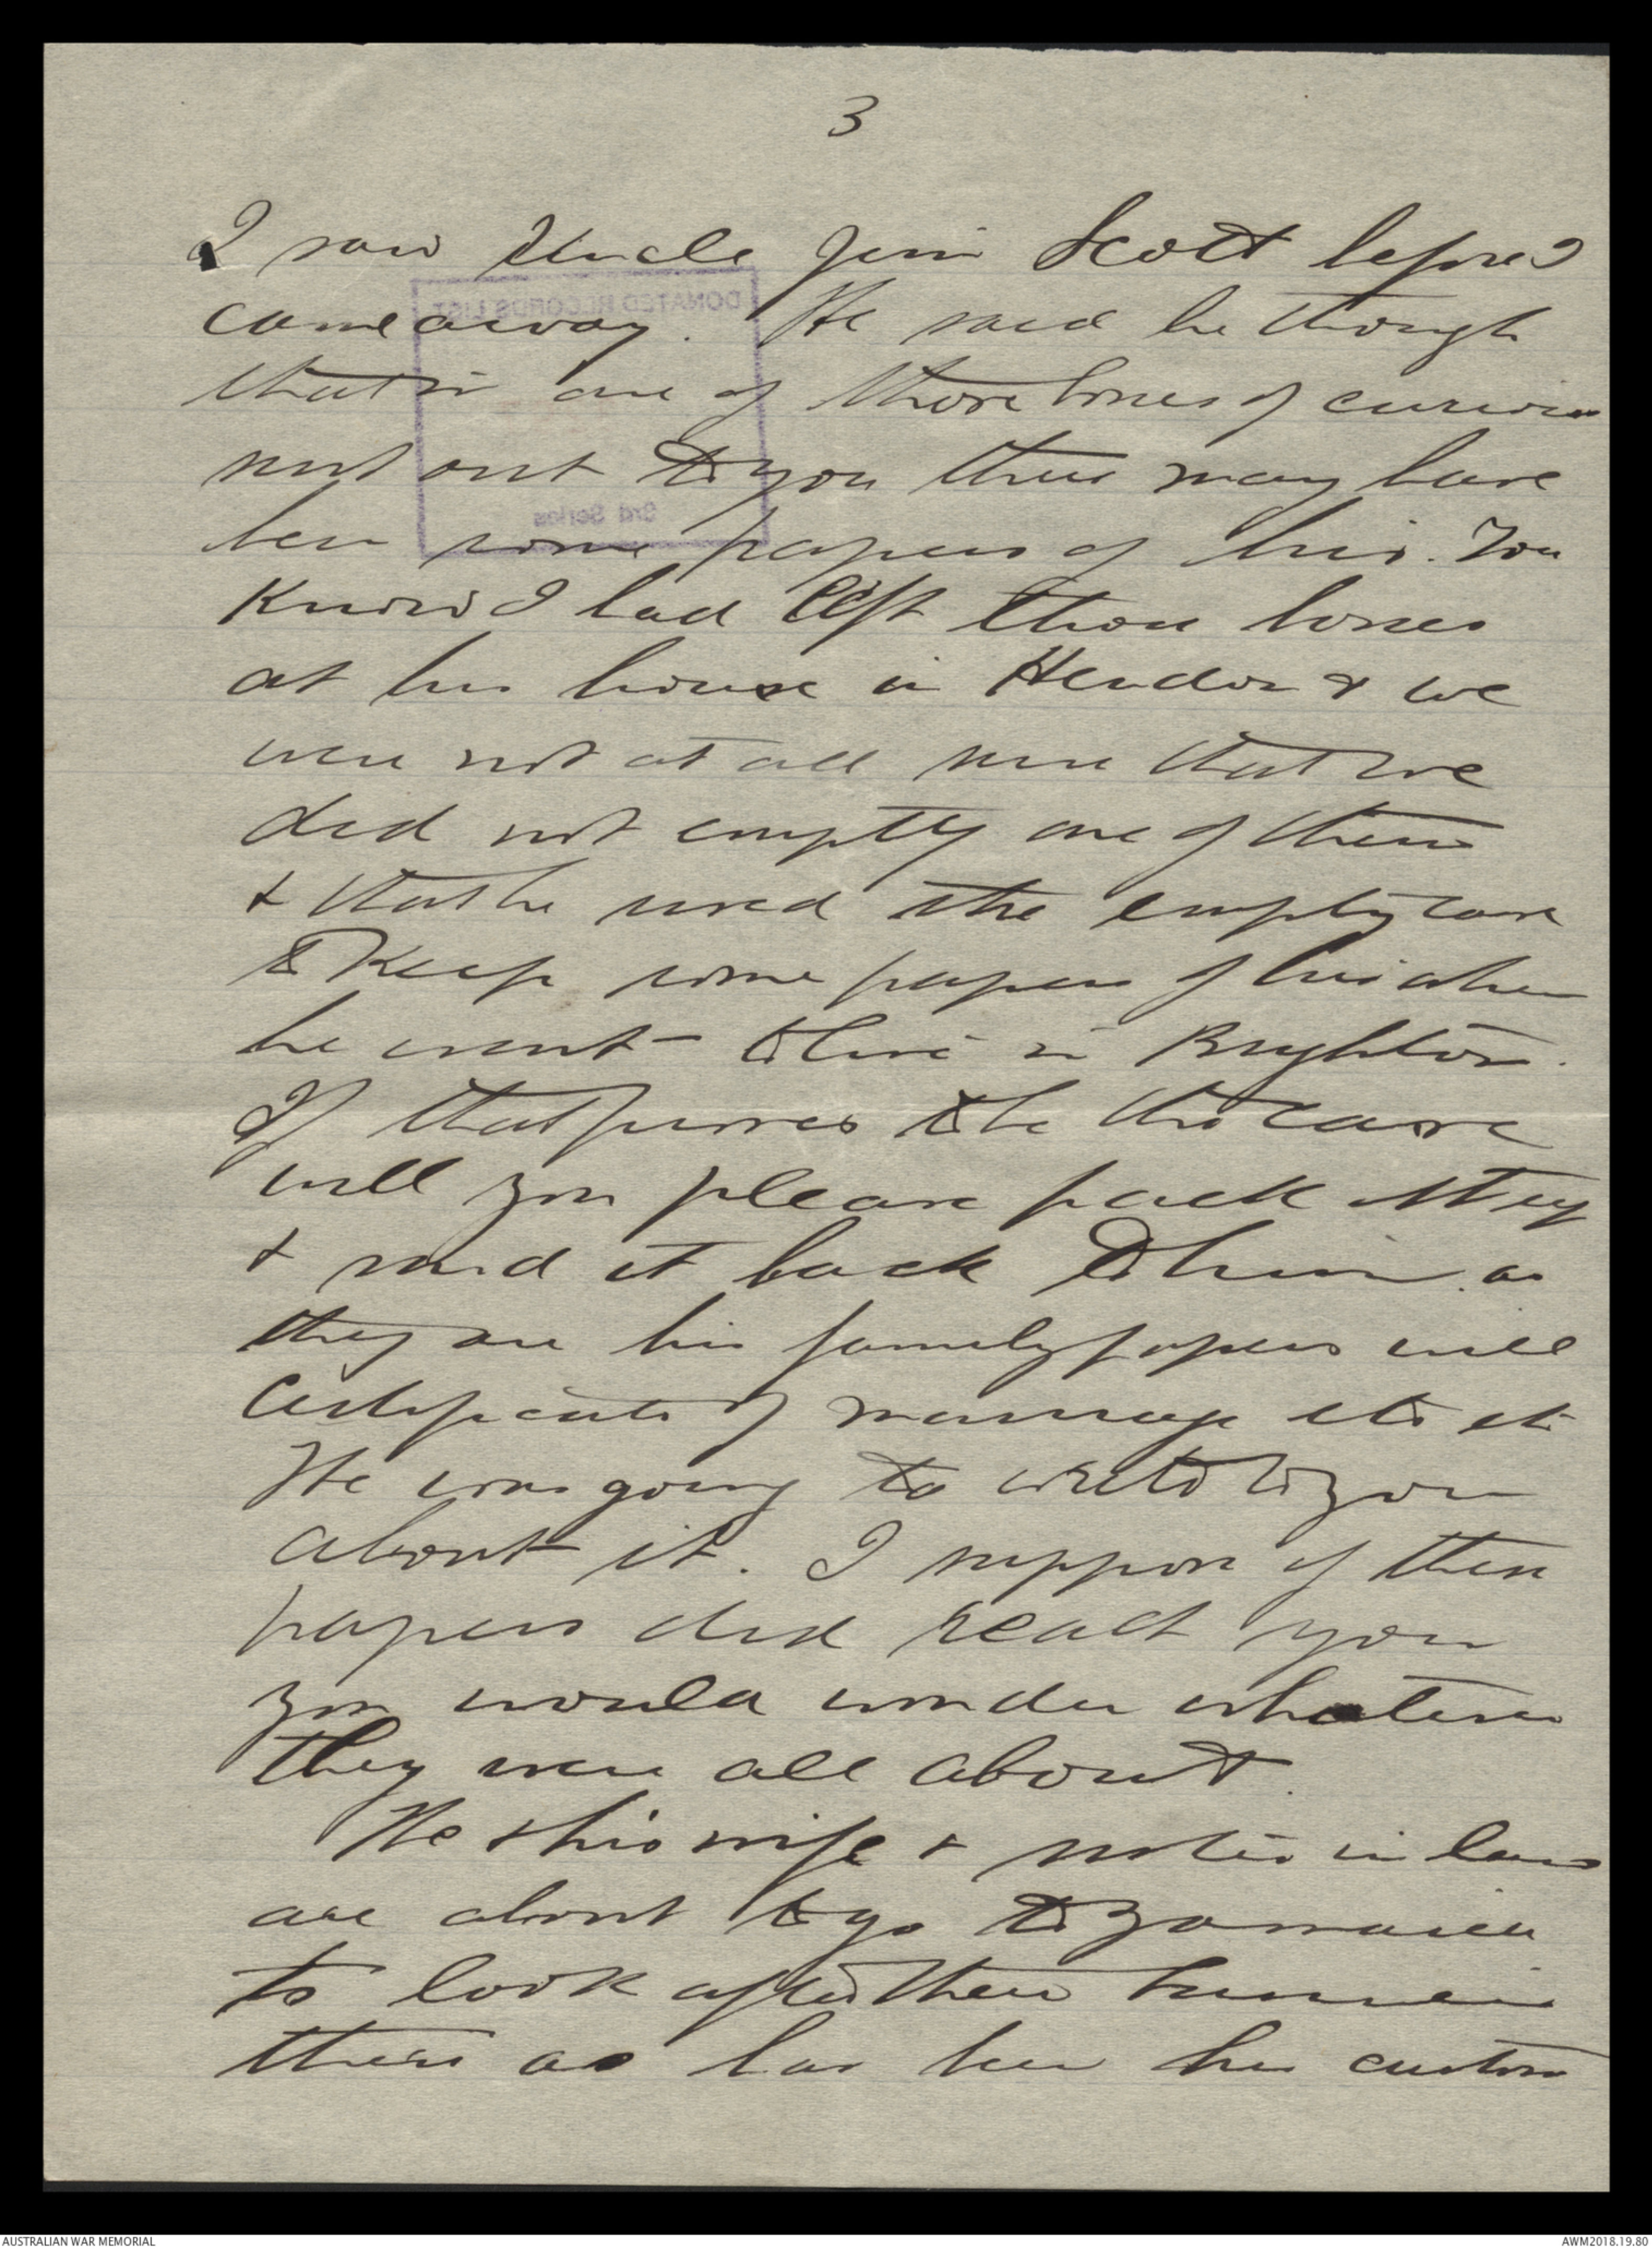 3
I saw Uncle Jim Scott before I
came away. He said he though
that in one of those boxes of curios
sent out to you there may have
been some papers of his. You
know I had left those boxes
at his house in Hendon & we
were not at all sure that we
did not empty one of them
& that he used the empty case
to keep some papers of his when
he went to live in Brighton.
If that proves to be the case
will you please pack it up
& send it back to him as
they are his family papers will
certificate of marriage etc etc
He was going to write to you
about it. I suppose if these
papers did reach you
you would wonder whatever
they were all about.
He & his wife & sister in law
are about to go to Jamaica
to look after their business
there as has been his custom
DONATED RECORDS LIST
3rd Series
AUSTRALIAN WAR MEMORIAL
AWM2018.19.80